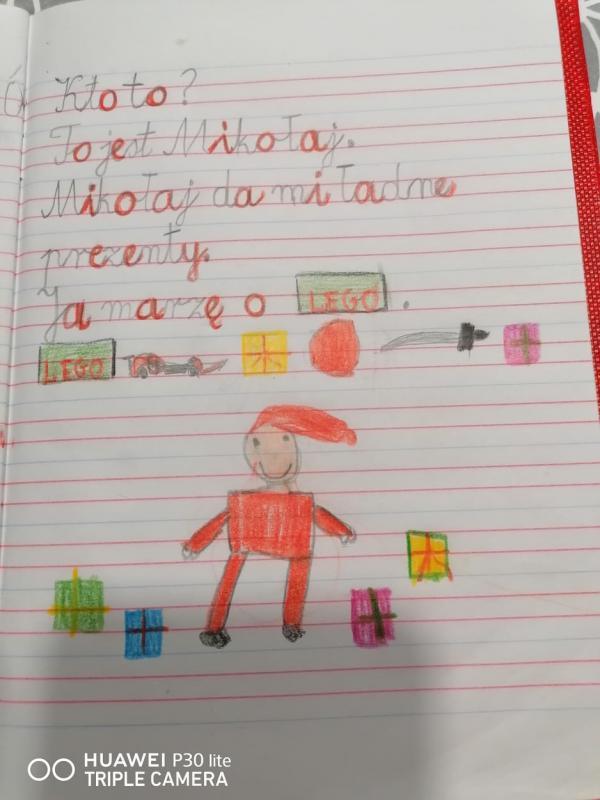 Kto to?
To jest Mikołaj.
Mikołaj da mi ładne
prezenty.
Ja marzę o LEGO.
LEGO
HUAWEI P30 lite
TRIPLE CAMERA